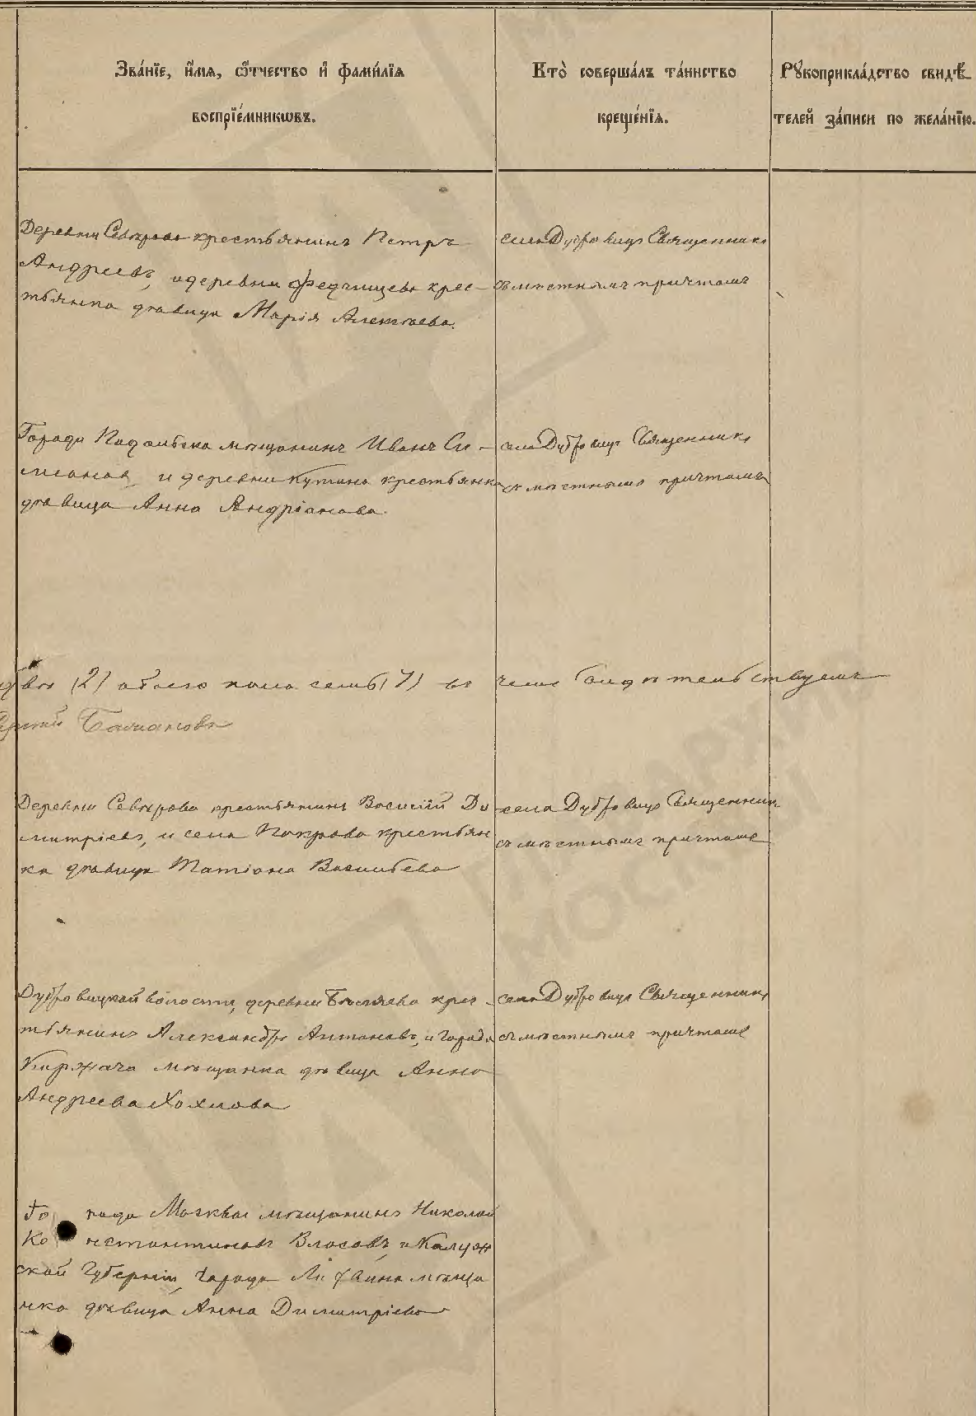 Зва́нїе, и҆́мѧ, ѻ҆́тчество и҆ фами́лїѧ
воспрїе́мникѡвъ.
Кто̀ соверша́лъ та́инство
креще́нїѧ.
Рꙋкоприкла́дство свидѣ́-
телей за́писи по жела́нїю.
Деревни Северова крестьянинъ Петръ
Андреевъ, и деревни Федчищева крес-
тьянка дѣвица Марія Алексѣева.
села Дубровицъ Священникъ
съ мѣстнымъ причтомъ
Города Подольска мѣщанинъ Иванъ Си-
и деревни Кутина крестьянка
дѣвица Анна Андріанова.
села Дубровицъ Священникъ
съ мѣстнымъ причтомъ
два (2) обоего пола семь (7) въ чемъ свидѣтельствуемъ
Деревни Северова крестьянинъ Василій Ди
митріевъ, и села Покрова крестьян
ка дѣвица Татіана Васильева
села Дубровицъ Священникъ
съ мѣстнымъ причтомъ
Дубровицкой волости, деревни Бѣляева крес-
тьянинъ Александръ Антоновъ, и города
Киржача мѣщанка дѣвица Анна
Андреева Хохлова
села Дубровицъ Священникъ
съ мѣстнымъ причтомъ
Города Москвы мѣщанинъ Николай
Константиновъ Власовъ и Калуж
ской Губерніи, города Лихвина мѣща
нка дѣвица Анна Димитріева